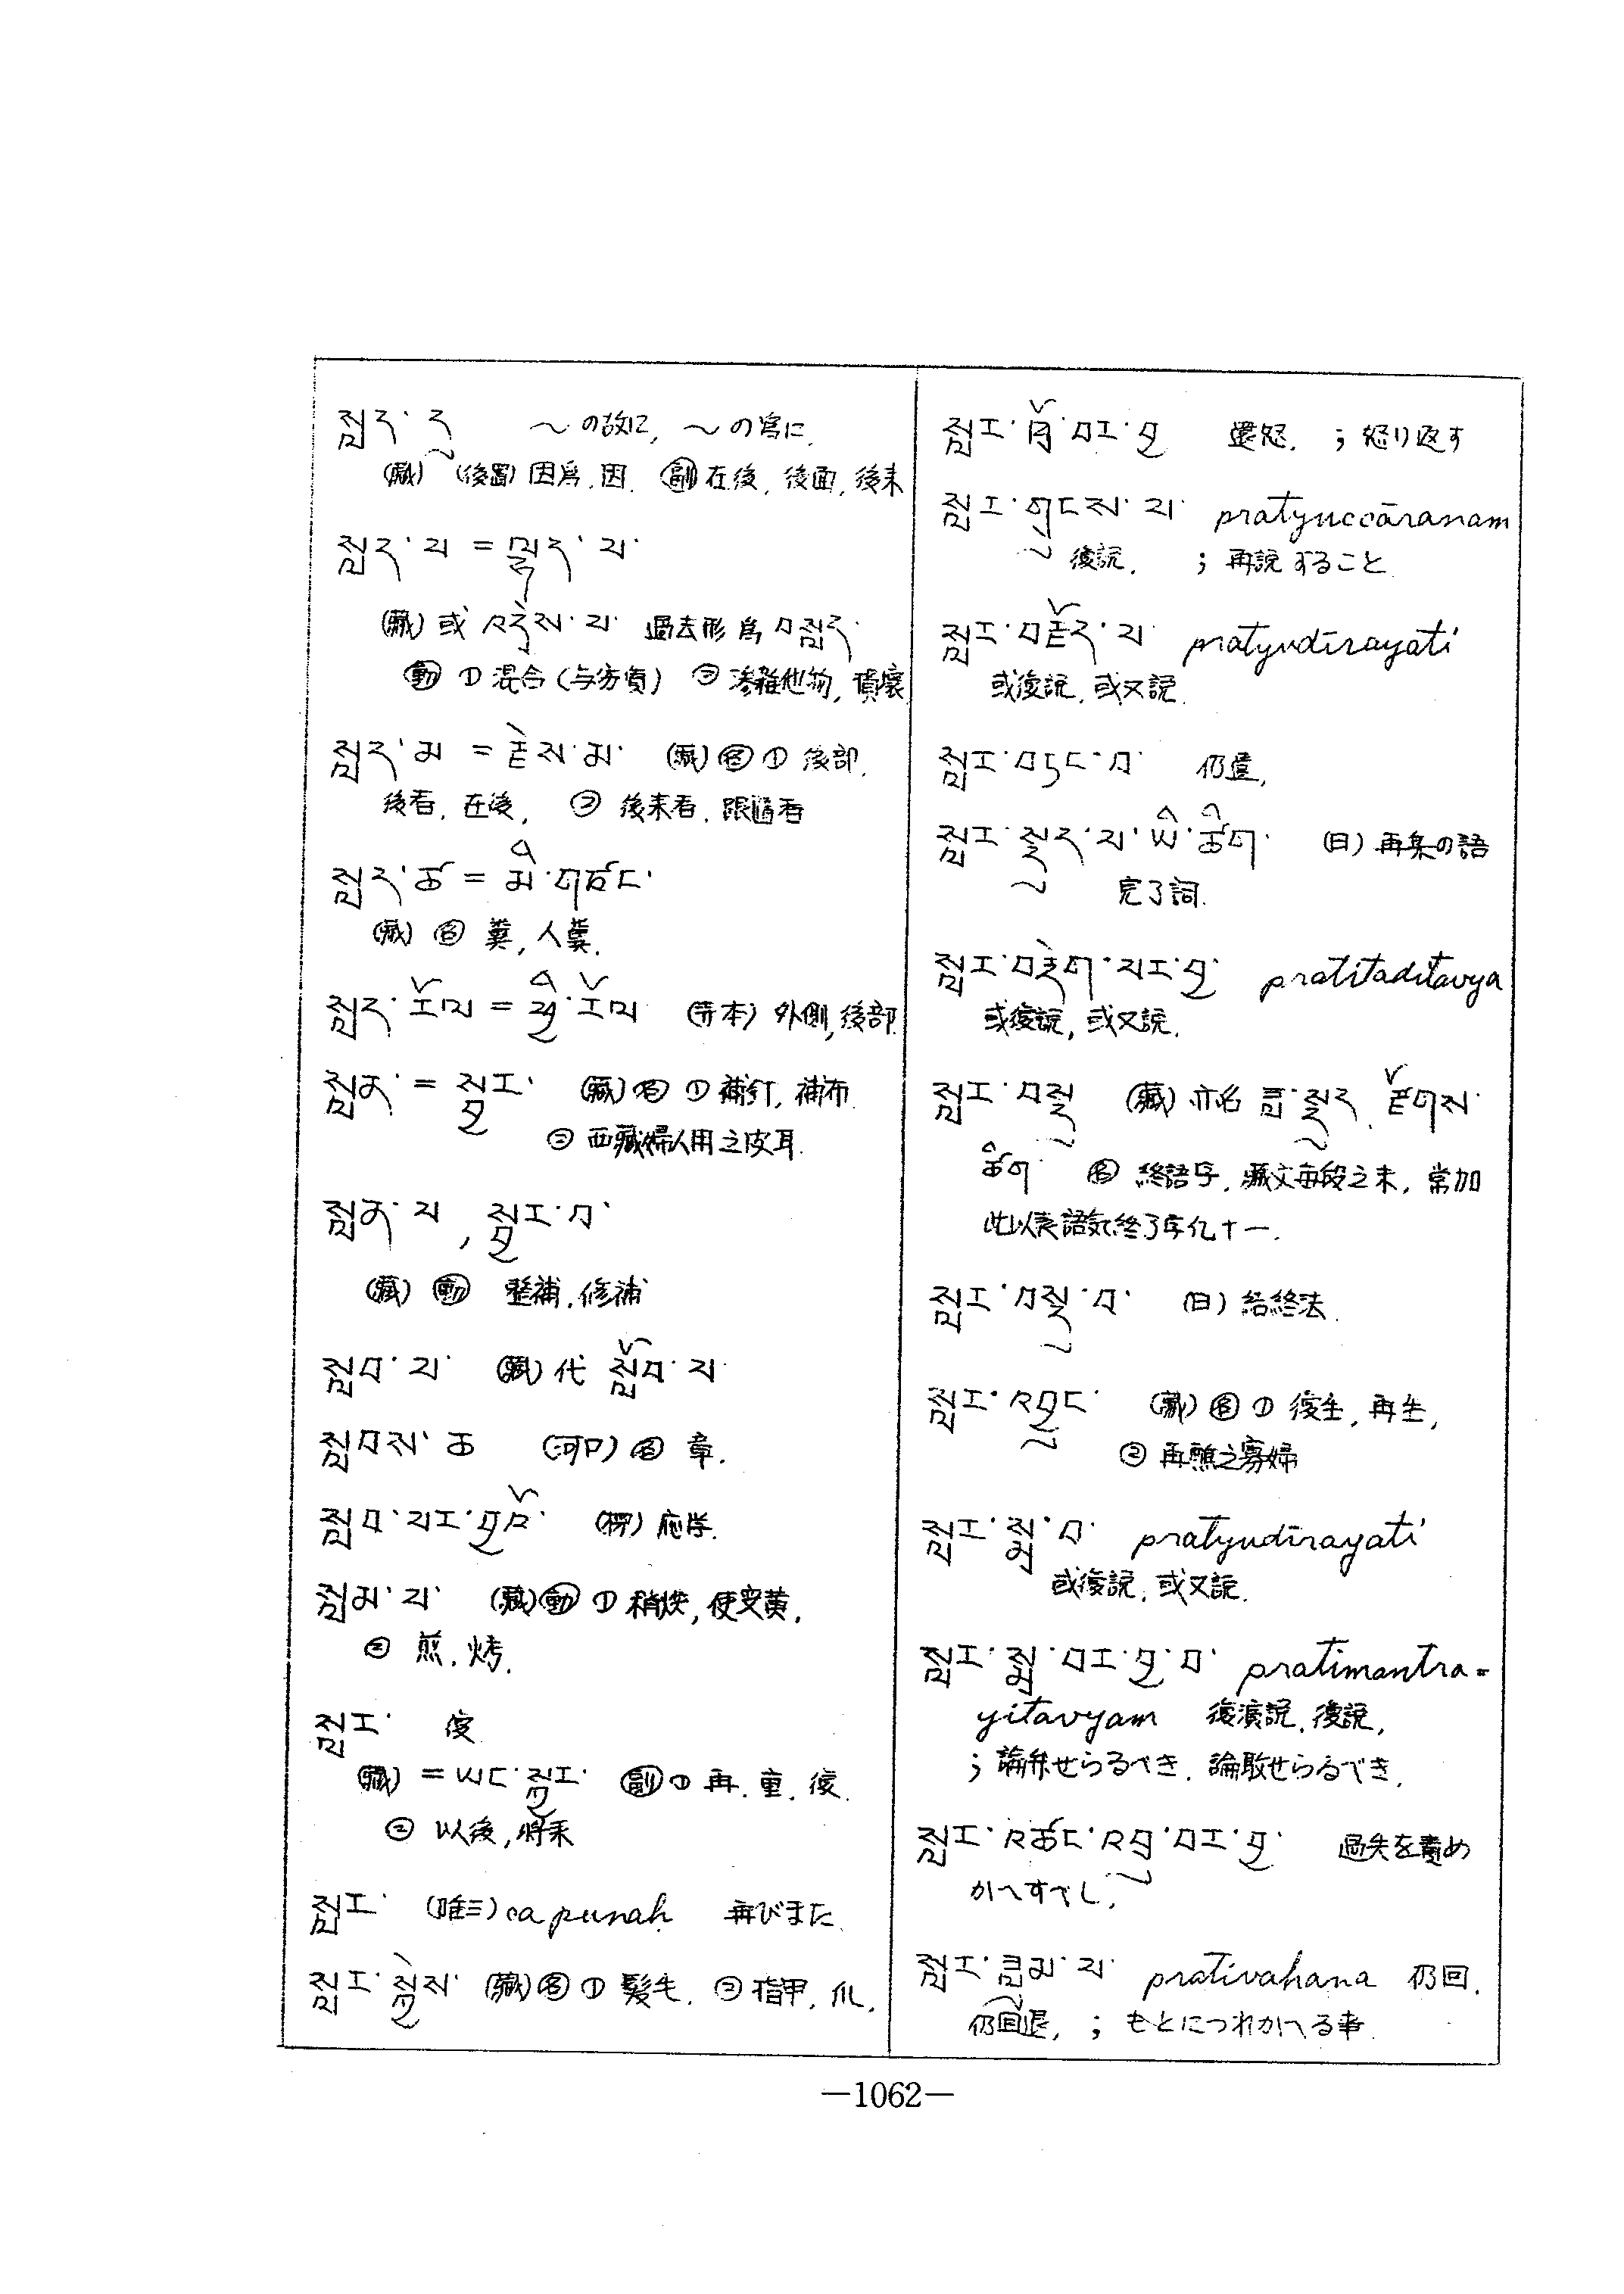 སླད་དུ ～の故に, ～の為に.
(藏) (後置) 因為, 因. 副 在後, 後面, 後来
སླད་པ = སླད་པ་
(藏) 或 འདྲེས་པ་ 過去形為 བསླད་
動 ① 混合 ② 滲雜他物, 損壞
སླད་མ = རྗེས་མ་ (藏) 名 ① 後部,
後者, 在後, ② 後来者, 跟隨者
སླད་ཆ = མི་གཙང་
(藏) 名 糞, 人糞.
སླད་རོལ = ཕྱི་རོལ (寺本) 外側, 後部
སླན་ = (藏) 名 ① 補釘, 補布
② 西藏婦人用之皮耳.
སླན་པ ,
(藏) 動 整補, 修補
སླབ་པ་ (藏) 代 སློབ་པ
སླབས་ཆ (河口) 名 章.
སླབ་པར་བྱའོ་ (楞) 応学.
སླམ་པ་ (藏) 動 ① 稍焼, 使変黄,
② 煎, 烤.
སླར་ 復
(藏) = ཡང་སྐྱར་ 副 ① 再, 重, 復.
② 以後, 将来
སླར་ (唯三) ca punaḥ 再びまた.
སླར་སྐྱེས་ (藏) 名 ① 髮毛. ② 指甲, 爪.
སླར་ཁྲོ་བར་བྱ 還怒. ; 怒り返す
སླར་གསུངས་པ་ pratyuccāranam
復説. ; 再説すること
སླར་བརྗོད་པ་ pratyudīrayati
或復説, 或又説.
སླར་བཏང་བ་ 仍遣,
སླར་སྡུད་པ་ཡི་ཚིག་ (日) 再集の語
完了詞.
སླར་བཟློག་པར་བྱ་ pratitaditavya
或復説, 或又説.
སླར་བསྡུ (藏) 亦名 སླ་སྡུད རྫོགས་
ཚིག་ 名 終語字, 藏文每段之末, 常加
此以表語気終了字化十一.
སླར་བསྡུ་བ་ (日) 結終法.
སླར་འབྱུང་ (藏) 名 ① 復生, 再生,
② 再醮之寡婦
སླར་སྨྲ་བ་ pratyudīrayati
或復説, 或又説.
སླར་སྨྲ་བར་བྱ་བ་ pratimantra=
yitavyam 復演説, 復説,
; 論弁せらるべき, 論駁せらるべき.
སླར་འཚང་འབྲུ་བར་བྱ་ 過失を責め
かへすべし,
སླར་ཟློམ་པ་ prativahana 仍回.
仍回退, ; もとにつれかへる事.
—1062—